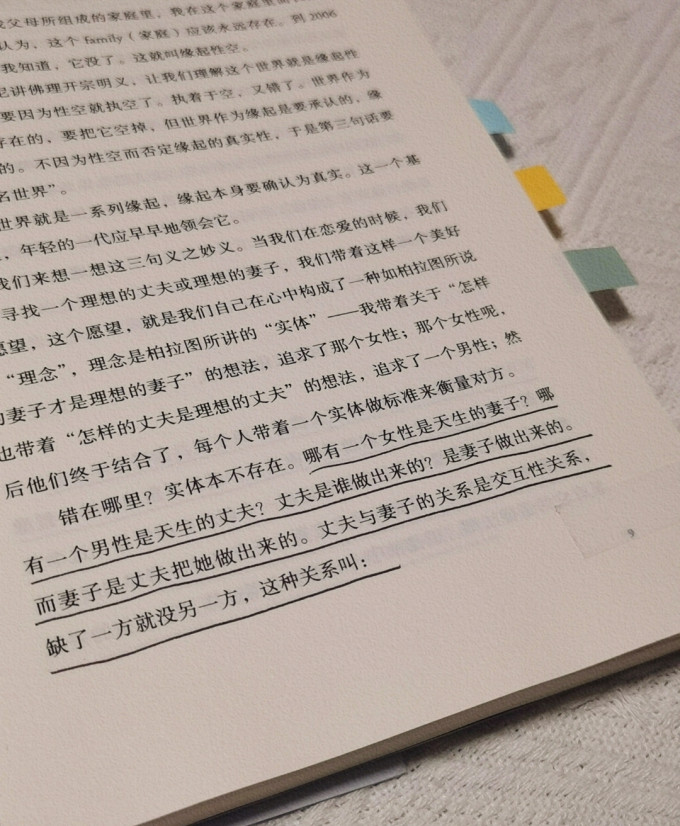 父母所组成的家庭里，我在这个家庭里
认为，这个 family（家庭）应该永远存在。到 2006
我知道，它没了。这就叫缘起性空。
讲佛理开宗明义，让我们理解这个世界就是缘起性
要因为性空就执空了。执着于空，又错了。世界作为
存在的，要把它空掉，但世界作为缘起是要承认的，缘
的。不因为性空而否定缘起的真实性，于是第三句话要
名世界”。
世界就是一系列缘起，缘起本身要确认为真实。这一个基
，年轻的一代应早早地领会它。
我们来想一想这三句义之妙义。当我们在恋爱的时候，我们
寻找一个理想的丈夫或理想的妻子，我们带着这样一个美好
愿望，这个愿望，就是我们自己在心中构成了一种如柏拉图所说
“理念”，理念是柏拉图所讲的“实体”——我带着关于“怎样
的妻子才是理想的妻子”的想法，追求了那个女性；那个女性呢，
也带着“怎样的丈夫是理想的丈夫”的想法，追求了一个男性；然
后他们终于结合了，每个人带着一个实体做标准来衡量对方。
错在哪里？实体本不存在。哪有一个女性是天生的妻子？哪
有一个男性是天生的丈夫？丈夫是谁做出来的？是妻子做出来的。
而妻子是丈夫把她做出来的。丈夫与妻子的关系是交互性关系，
缺了一方就没另一方，这种关系叫：
9